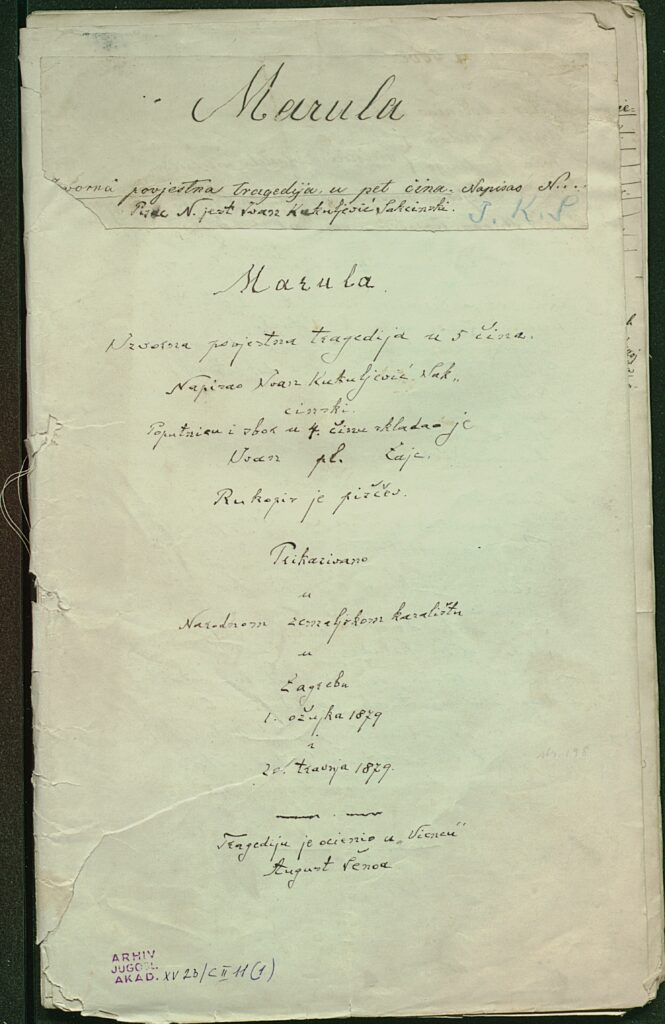 Marula
Izvorna povjestna tragedija u pet čina. Napisao N....
Pisac N. jest Ivan Kukuljević Sakcinski. I. K. S.
Marula.
Izvorna povjestna tragedija u 5 čina.
Napisao Ivan Kukuljević Sak„
cinski.
Poputnicu i zbor u 4. činu skladao je
Ivan pl. Zajc.
Rukopis je piščev.
Prikazivano
u
Narodnom zemaljskom kazalištu
u
Zagrebu
1. ožujka 1879
i
20. travnja 1879.
Tragediju je ocienio u „Viencu"
August Šenoa
ARHIV
JUGOSL.
AKAD. XV 23/C II 11 (1)